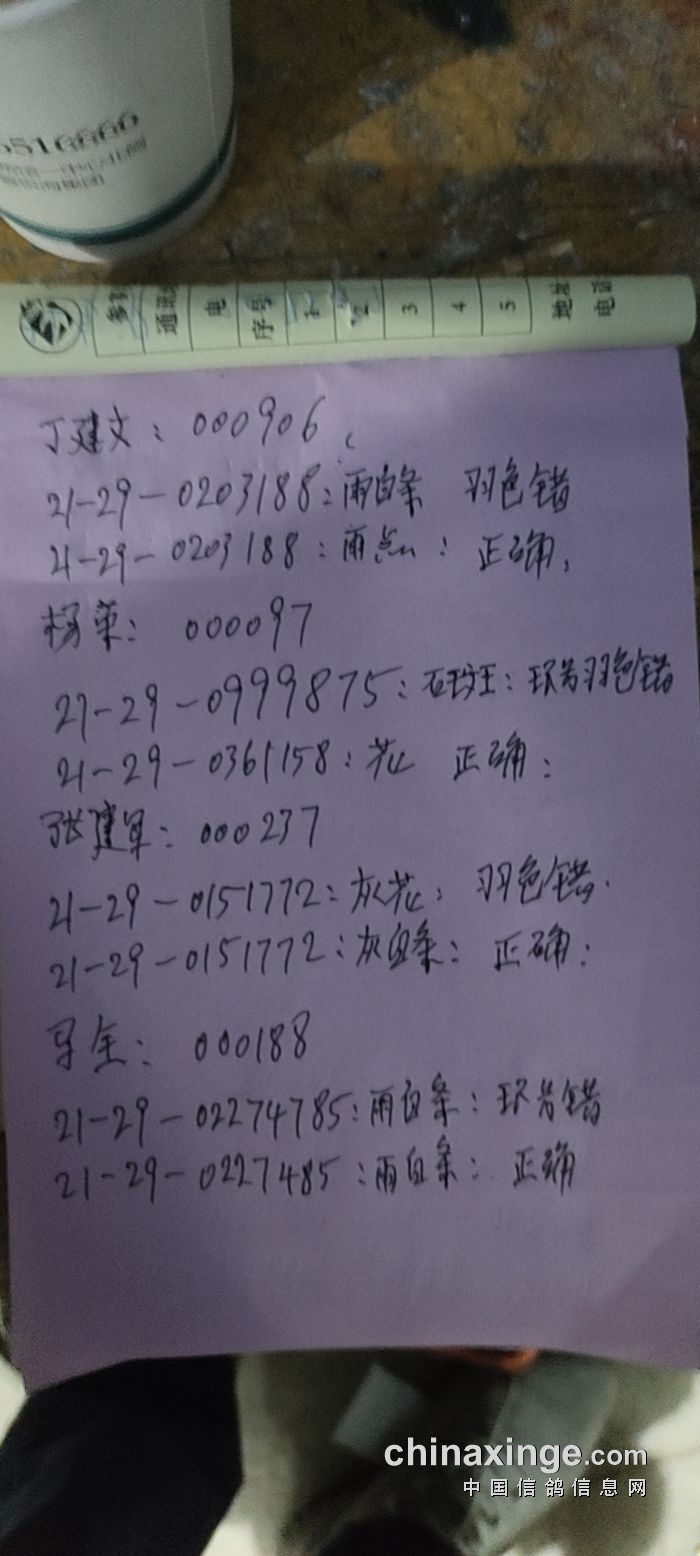 516866
电
序号
1
2
3
4
5
丁建文：000906
21-29-0203188：雨白条 羽色错
21-29-0203188：雨点：正确，
杨荣：000097
21-29-0999875：石斑：环号羽色错
21-29-0361158：花 正确：
张建军：000237
21-29-0151772：灰花：羽色错.
21-29-0151772：灰白条：正确：
全：000188
21-29-02274785：雨白条：环号错
21-29-0227485：雨白条：正确
chinaxinge.com
中国信鸽信息网